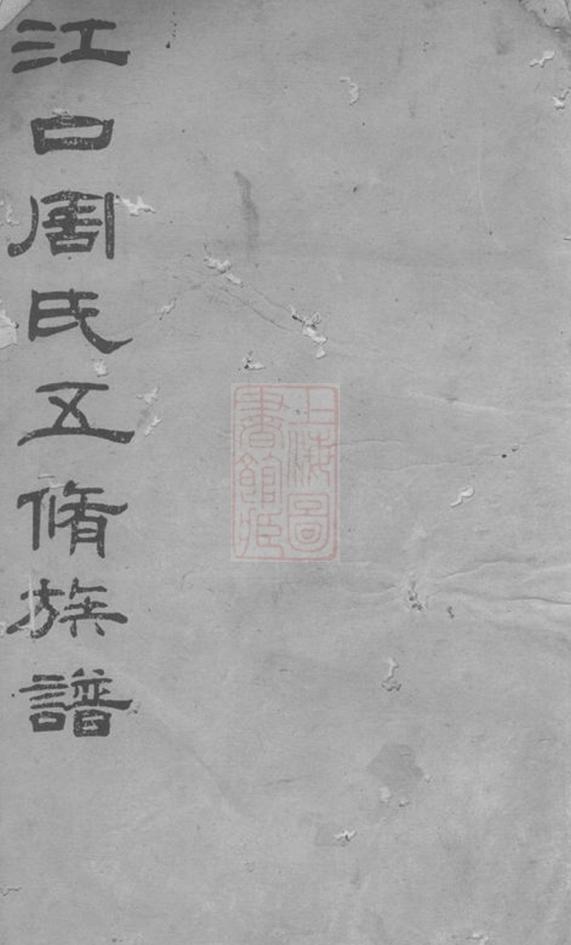 江口周氏五脩族譜
上海圖
書館藏